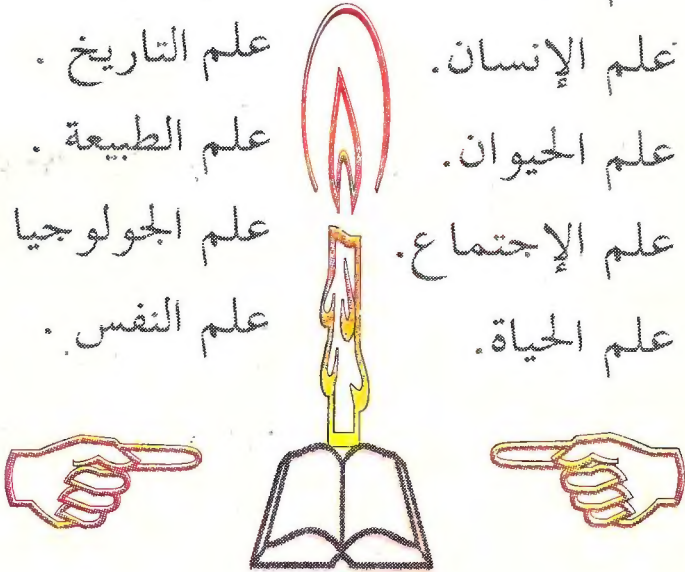 علم الإنسان.
علم الحيوان.
علم الإجتماع.
علم الحياة.
علم التاريخ .
علم الطبيعة .
علم الجولوجيا
علم النفس .